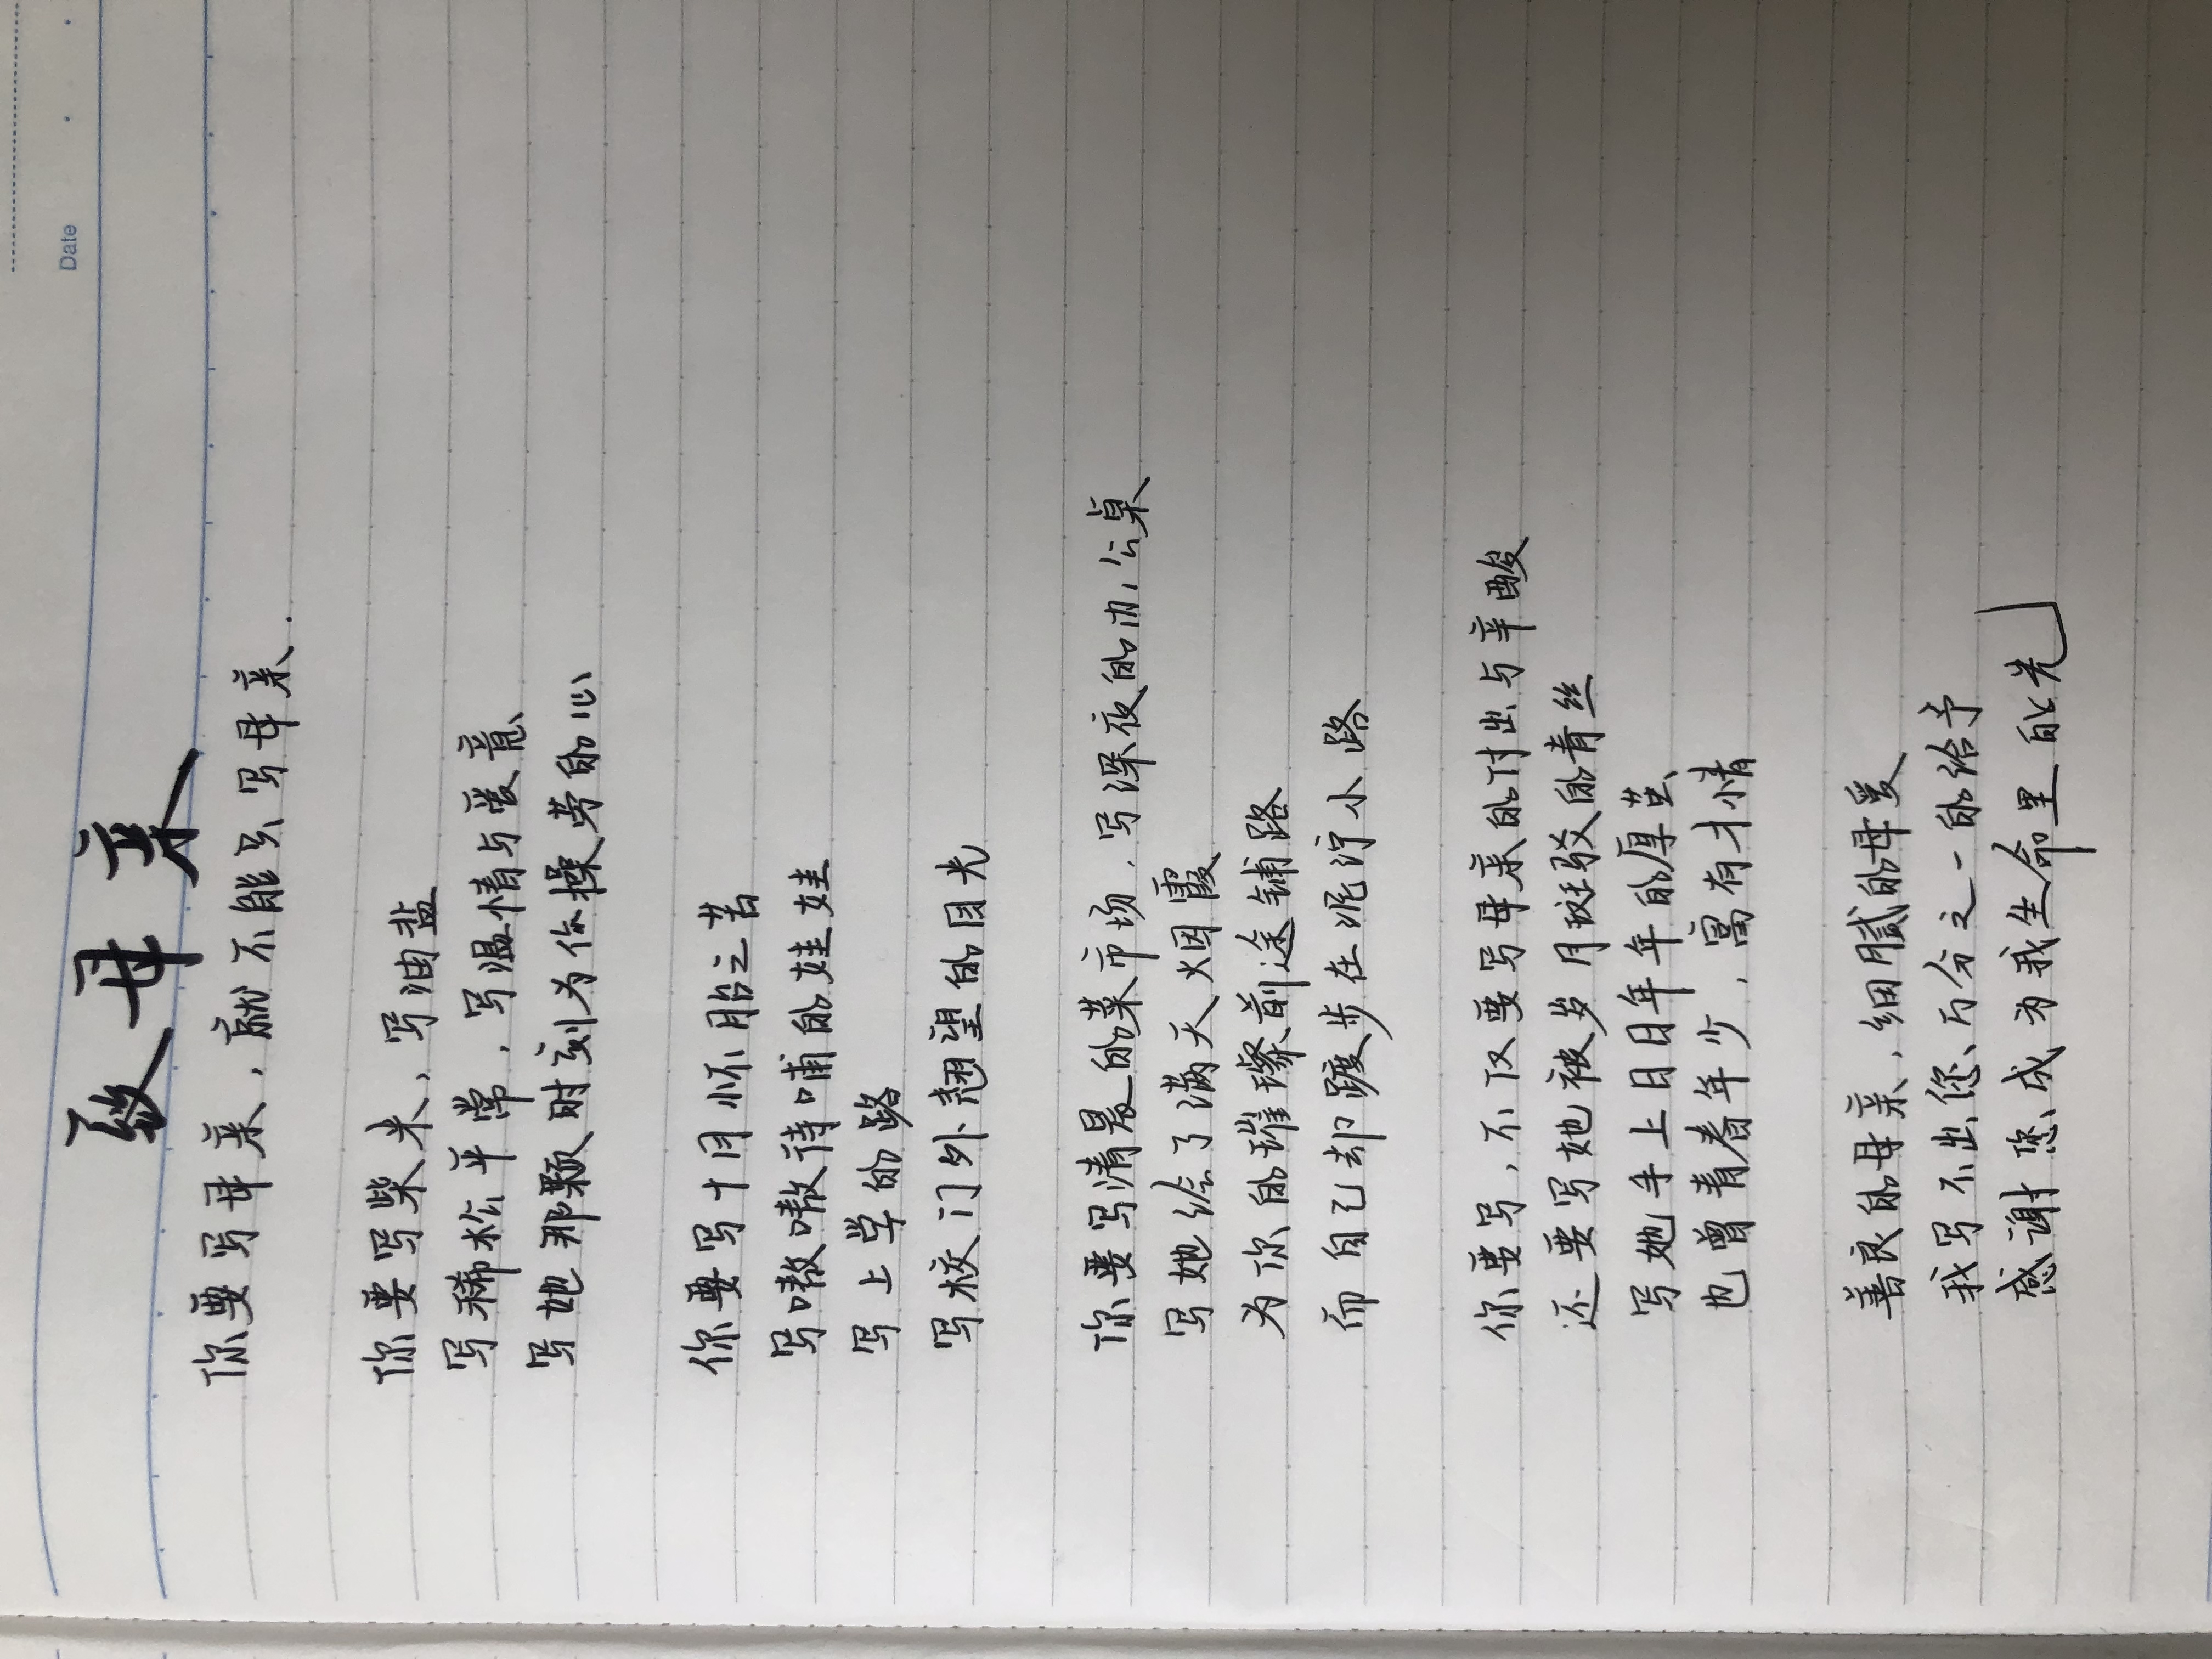 Date
致母亲
你要写母亲，就不能只写母亲.
你要写柴米，写油盐
写稀松平常，写温情与爱意
写她那颗时刻为你操劳的心
你要写十月怀胎之苦
写嗷嗷待哺的娃娃
写上学的路
写校门外翘望的目光
你要写清晨的菜市场，写深夜的办公桌
写她绘了满天烟霞
为你的璀璨前途铺路
而自己却踱步在泥泞小路
你要写，不仅要写母亲的付出与辛酸
还要写她被岁月斑驳的青丝
写她手上日日年年的厚茧
也曾青春年少，富有才情
善良的母亲，细腻的母爱
我写不出您万分之一的给予
感谢您成为我生命里的光